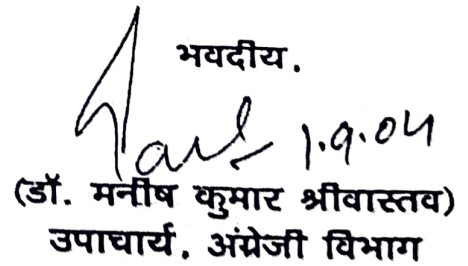 भवदीय.
1.9.04
(डॉ. मनीष कुमार श्रीवास्तव)
उपाचार्य. अंग्रेजी विभाग